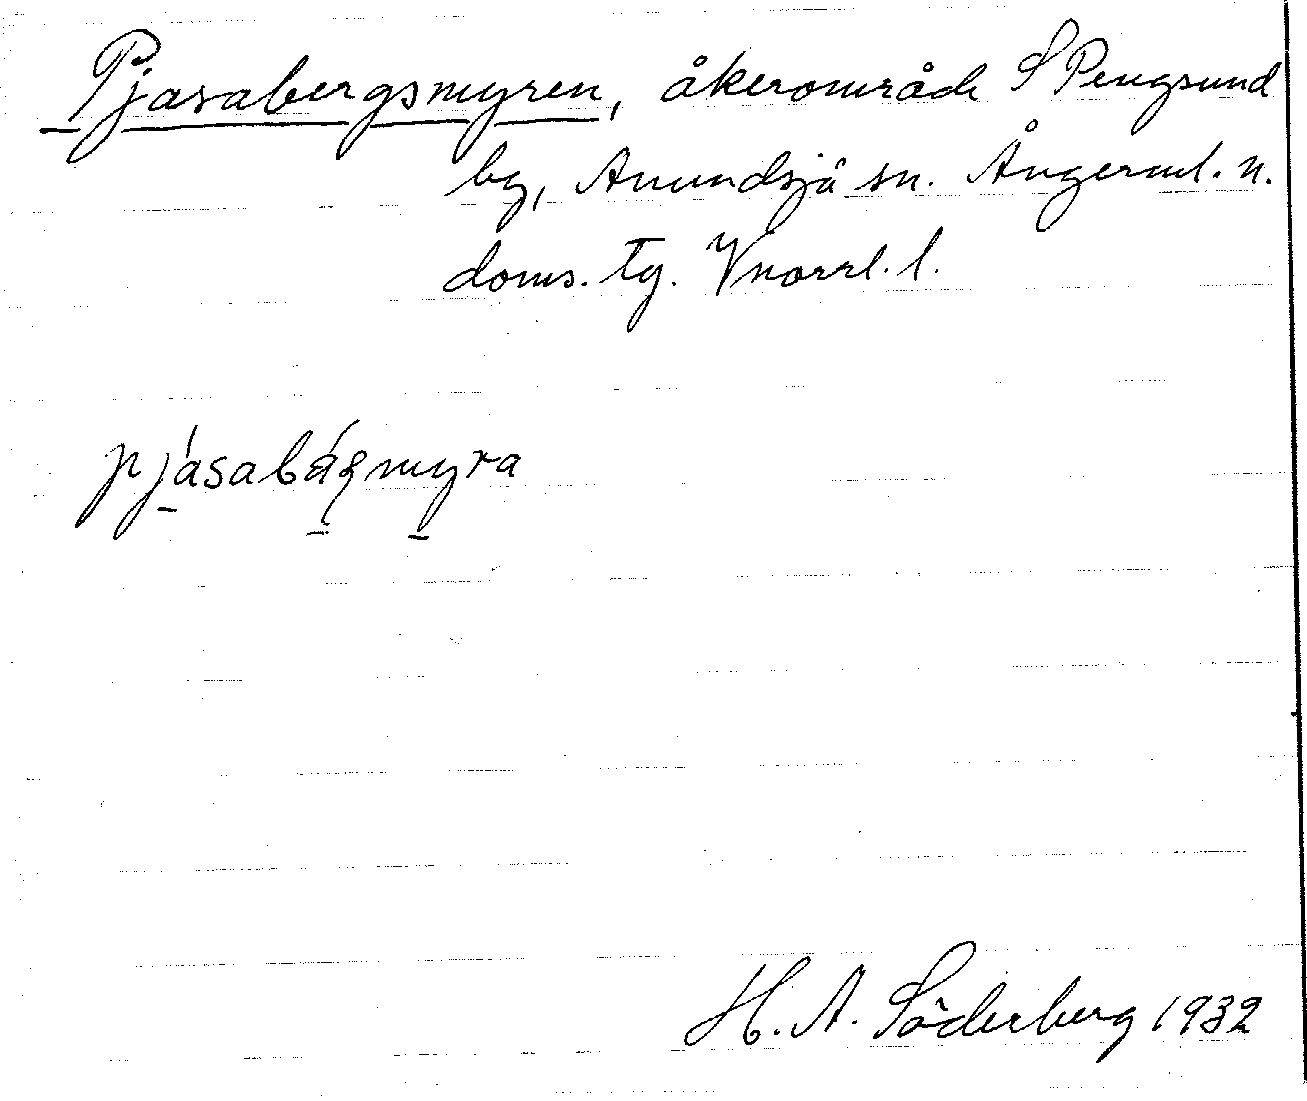 Pjasabergsmyren, åkerområde S Pengsund
by, Anundsjö sn. Ångerml. n.
doms. tg. Vnorrl. l.
pjásabáqmyra
H. A. Söderberg 1932